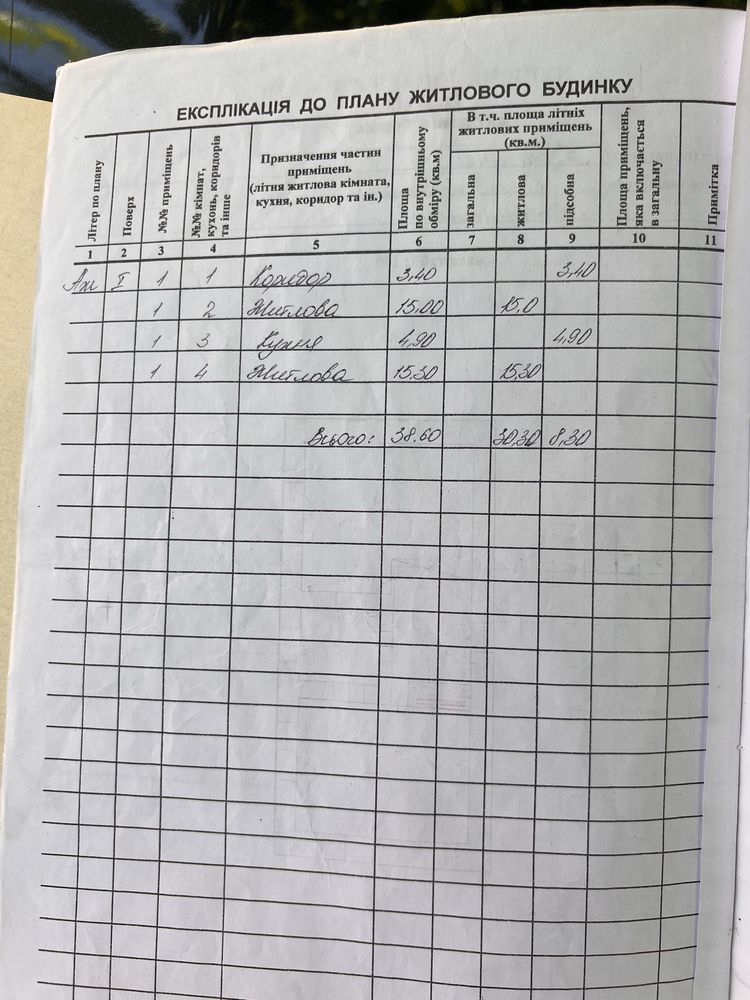 ЕКСПЛІКАЦІЯ ДО ПЛАНУ ЖИТЛОВОГО БУДИНКУ
Літер по плану
Поверх
№№ приміщень
№№ кімнат, кухонь, коридорів та інше
Призначення частин приміщень (літня житлова кімната, кухня, коридор та ін.)
Площа по внутрішньому обміру (кв.м)
В т.ч. площа літніх житлових приміщень (кв.м.)
загальна
житлова
підсобна
Площа приміщень, яка включається в загальну
Примітка
1 2 3 4 5 6 7 8 9 10 11
I 1 1 Коридор 3,40 3,40
1 2 Житлова 15,00 15,0
1 3 Кухня 4,90 4,90
1 4 Житлова 15,30 15,30
Всього: 38.60 30,30 8,30